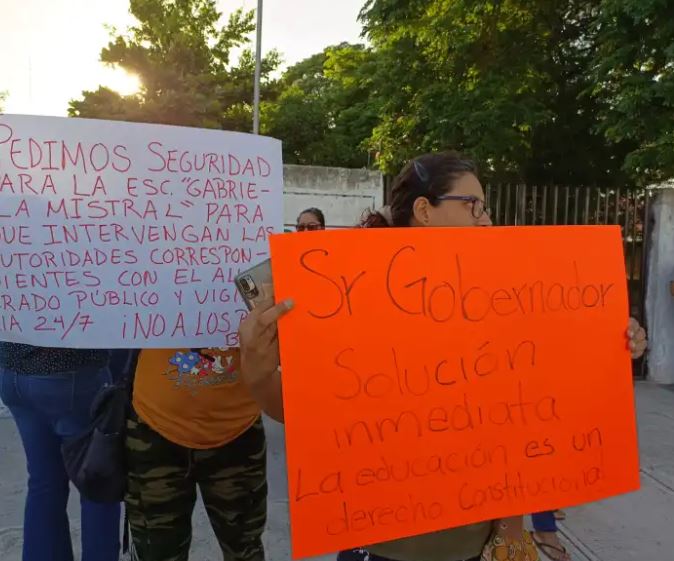 PEDIMOS SEGURIDAD
PARA LA ESC. "GABRIE-
LA MISTRAL" PARA
QUE INTERVENGAN LAS
AUTORIDADES CORRESPON-
DIENTES CON EL
PÚBLICO Y
24/7 ¡NO A LOS
Sr Gobernador
Solución
inmediata
La educación es un
derecho Constitucional